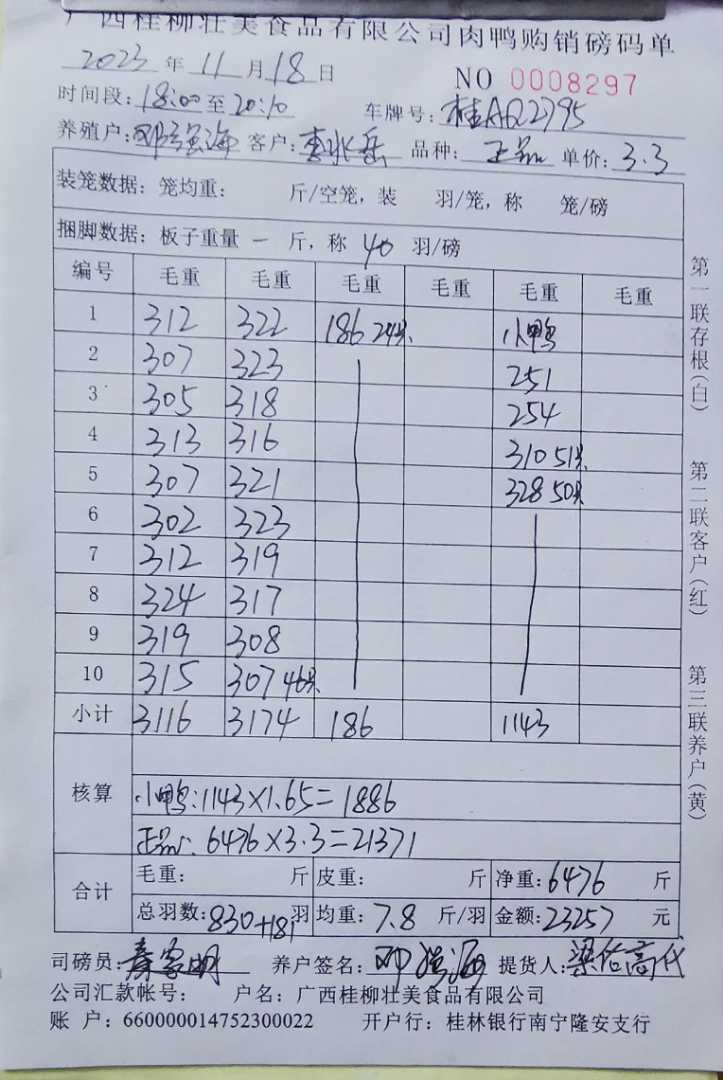 广西桂柳壮美食品有限公司肉鸭购销磅码单
2023 年 11 月 18 日 NO 0008297
时间段: 18:00 至 20:10 车牌号: 桂AQ2795
养殖户: 邓强海 客户: 李冰岳 品种: 正品 单价: 3.3
装笼数据: 笼均重: 斤/空笼, 装 羽/笼, 称 笼/磅
捆脚数据: 板子重量 一 斤, 称 40 羽/磅
编号 毛重 毛重 毛重 毛重 毛重 毛重
1 312 322 186 24只 小鸭
2 307 323 251
3 305 318 254
4 313 316 310 51只
5 307 321 328 50只
6 302 323
7 312 319
8 324 317
9 319 308
10 315 307 46只
小计 3116 3174 186 1143
核算
小鸭:1143×1.65=1886
正品: 6476×3.3=21371
合计 毛重: 斤 皮重: 斤 净重: 6476 斤
总羽数: 830+181 羽 均重: 7.8 斤/羽 金额: 23257 元
司磅员: 养户签名: 邓强海 提货人:
公司汇款帐号: 户名: 广西桂柳壮美食品有限公司
账 户: 660000014752300022 开户行: 桂林银行南宁隆安支行
第一联存根(白)
第二联客户(红)
第三联养户(黄)